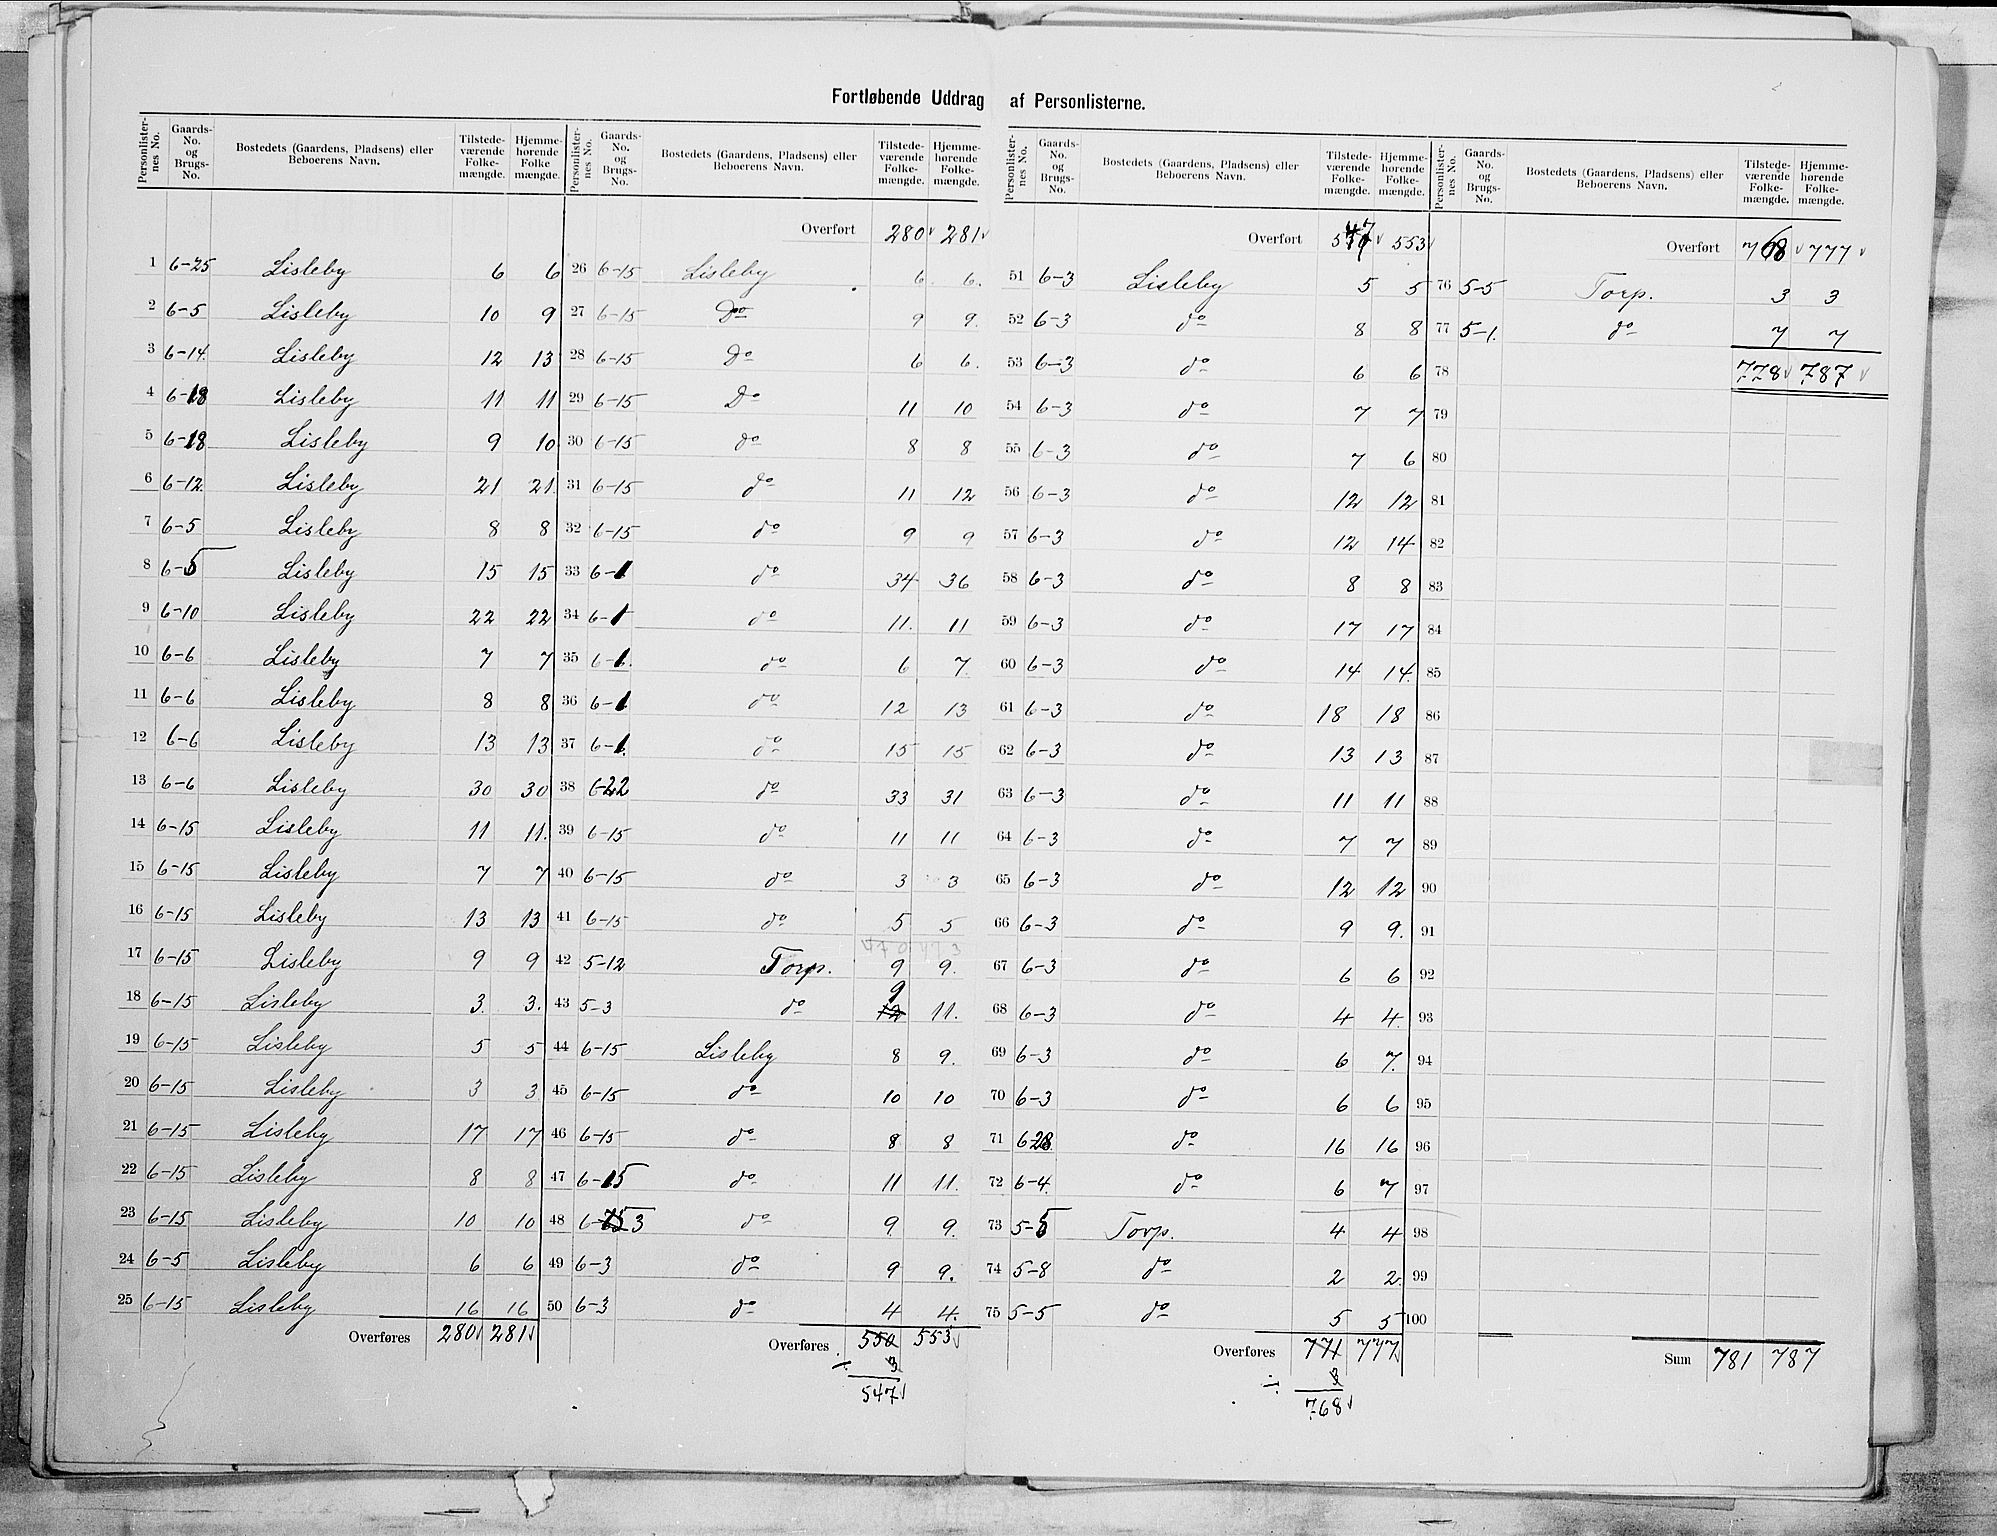 Fortløbende Uddrag af Personlisterne.
Personlister-nes No. | Gaards-No. og Brugs-No. | Bostedets (Gaardens, Pladsens) eller Beboerens Navn. | Tilstede-værende Folke-mængde. | Hjemme-hørende Folke mængde.
1 6-25 Lisleby 6 6
2 6-5 Lisleby 10 9
3 6-14. Lisleby 12 13
4 6-18 Lisleby 11 11
5 6-18 Lisleby 9 10
6 6-12. Lisleby 21 21
7 6-5 Lisleby 8 8
8 6-5 Lisleby 15 15
9 6-10 Lisleby 22 22
10 6-6 Lisleby 7 7
11 6-6 Lisleby 8 8
12 6-6 Lisleby 13 13
13 6-6 Lisleby 30 30
14 6-15 Lisleby 11 11.
15 6-15 Lisleby 7 7
16 6-15 Lisleby 13 13
17 6-15 Lisleby 9 9
18 6-15 Lisleby 3. 3.
19 6-15 Lisleby 5 5
20 6-15 Lisleby 3 3
21 6-15 Lisleby 17 17
22 6-15 Lisleby 8 8
23 6-15 Lisleby 10 10
24 6-5 Lisleby 6 6
25 6-15 Lisleby 16 16
Overføres 280 281
Personlister-nes No. | Gaards-No. og Brugs-No. | Bostedets (Gaardens, Pladsens) eller Beboerens Navn. | Tilstede-værende Folke-mængde. | Hjemme-hørende Folke-mængde.
Overført 280 281
26 6-15 Lisleby 6. 6.
27 6-15 Do 9 9.
28 6-15 Do 6 6.
29 6-15 Do 11 10
30 6-15 do 8 8
31 6-15 do 11 12
32 6-15 do 9 9
33 6-1 do 34 36
34 6-1 do 11. 11
35 6-1. do 6 7.
36 6-1 do 12 13
37 6-1. do 15 15
38 6-22 do 33 31
39 6-15 do 11 11
40 6-15 do 3 3
41 6-15 do 5 5
42 5-12 Torp. 9 9.
43 5-3 do 12 9 11.
44 6-15 Lisleby 8 9.
45 6-15 do 10 10
46 6-15 do 8 8
47 6-15 do 11 11.
48 6-15 3 do 9. 9.
49 6-3 do 9 9.
50 6-3 do 4 4.
Overføres 550 553
÷ 3
547
Personlister-nes No. | Gaards-No. og Brugs-No. | Bostedets (Gaardens, Pladsens) eller Beboerens Navn. | Tilstede-værende Folke-mængde. | Hjemme-hørende Folke-mængde.
Overført 547 553
51 6-3 Lisleby 5 5
52 6-3 do 8 8
53 6-3 do 6 6
54 6-3 do 7 7
55 6-3 do 7 6
56 6-3 do 12 12
57 6-3 do 12 14
58 6-3 do 8 8
59 6-3 do 17 17
60 6-3 do 14 14.
61 6-3 do 18 18
62 6-3 do 13 13
63 6-3 do 11 11
64 6-3 do 7 7
65 6-3 do 12 12
66 6-3 do 9 9.
67 6-3 do 6 6
68 6-3 do 4 4.
69 6-3 do 6 7.
70 6-3 do 6 6
71 6-28 do 16 16
72 6-4. do 6 7
73 5-5 Torp. 4 4
74 5-8 do 2 2.
75 5-5 do 5 5
Overføres 771 777
÷ 3
768
Personlister-nes No. | Gaards-No. og Brugs-No. | Bostedets (Gaardens, Pladsens) eller Beboerens Navn. | Tilstede-værende Folke-mængde. | Hjemme-hørende Folke-mængde.
Overført 768 777
76 5-5 Torp. 3 3
77 5-1. do 7 7
78 778 787
79
80
81
82
83
84
85
86
87
88
89
90
91
92
93
94
95
96
97
98
99
100
Sum 781 787